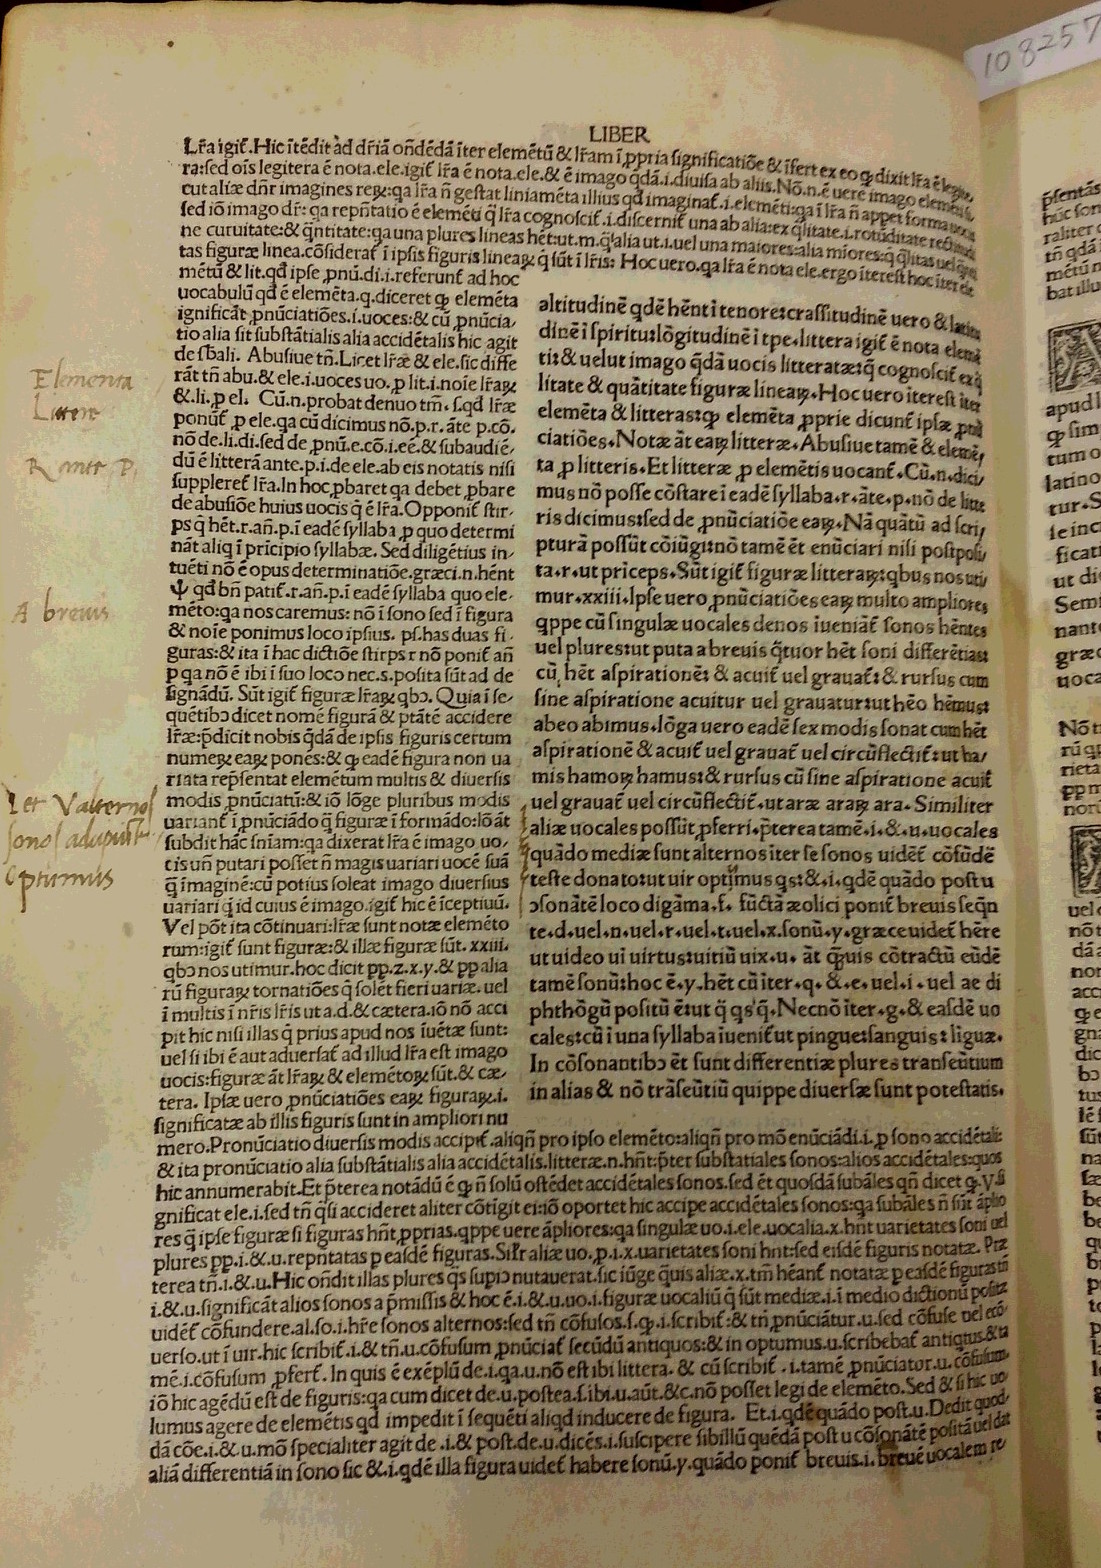 108257
LIBER
Lr̃a igit᷑. Hic ītēdit ad dr̃iā on̄dēdā īter elemētū & lr̃am ī ꝓpria significatiōe & īfert ex eo ꝙ dixit lr̃a ē legite
ra: sed oīs legitera ē nota.ele.igit᷑ lr̃a ē nota.ele.& ē imago q̄dā.i.diuisa ab aliis. Nō.n.ē uere imago elemēti
cut aliæ dn̄r imagines reꝝ: qa lr̃a n̄ gestat liniamēta illius qd imaginat᷑.i.elemēti: qa ī lr̃a n̄ appet forma uocis
sed iō imago dr̄: qa repn̄tatio ē elemēti q̄ lr̃a cognoscit᷑.i.discernit᷑ una ab alia: ex q̄litate.i.rotūditate
ne curuitate: & q̄ntitate: qa una plures lineas hēt: ut.m.q̄ alia ut.i.uel una maiores: alia mīores: q̄ q̄litas uel
tas figuræ linea.cōsiderat᷑ ī ipsis figuris lineaꝝ q̄ sūt ī lr̃is: Hoc uero.qa lr̃a ē nota ele.ergo īterest hoc īter ele
mētū & lit.qđ ipse ꝓnū.di.i.referunt᷑ ad hoc
uocabulū qđ ē elemēta.q.diceret ꝙ elemēta
ignificāt ꝓnūciatiōes.i.uoces: & cū ꝓnūcia-
tio alia sit substātialis alia accidētalis hic agit
de sbali. Abusiue tn̄. Licet lr̃æ & ele.sic diffe
rāt tn̄ abu.& ele.i.uoces uo.ꝑ lit.i.noīe lr̃aꝝ
&.li.ꝑ el. Cū.n.probat denuo tm̄.s.qđ lr̃æ
ponūt᷑ ꝑ ele.qa cū dicimus nō.p.r.āte p.cō.
nō de.li.di.sed de ꝓnū.e.cō.i.eē.& subaudiē-
dū ē litterā ante.p.i.de ele.ab eis notatis nisi
suppleret᷑ lr̃a. In hoc ꝓbaret qa debet ꝓbare
de abusiōe huius uocis q̄ ē lr̃a. Opponit᷑ stir-
ps q̄ hēt.r.an̄.p.ī eadē syllaba ꝑ quo determi
nāt aliq ī prīcipio syllabæ. Sed diligētius in-
tuēti nō ē opus determinatiōe.græci.n.hēnt
Ψ qđ bn̄ patit᷑.r.an̄.p.ī eadē syllaba quo ele-
mēto: qa nos caremus: nō ī sono sed ī figura
& noīe ponimus loco ipsius. ps.has duas fi-
guras: & ita ī hac dictiōe stirps r nō ponit᷑ an̄
p qa nō ē ibi ī suo loco nec.s.posita sūt ad de
signādū. Sūt igit᷑ figuræ lr̃aꝝ qbꝯ. Quia ī se-
quētibꝯ dicet nomē figurā & ptātē accidere
lr̃æ: p̄dicit nobis q̄dā de ipsis figuris certum
numeꝝ eaꝝ ponēs: & ꝙ eadē figura non ua
riata rep̄sentat elemētum multis & diuersis
modis ꝓnūciatū: & iō lōge pluribus modis
uariant᷑ ī ꝓnūciādo q̄ figuræ ī formādo: lōāt
subdit hāc sn̄iam: qa dixerat lr̃a ē imago uo-
cis un̄ putari posset n̄ magis uariari uocē suā
q̄ imaginē: cū potius soleat imago diuersius
uariari q̄ id cuius ē imago.igit᷑ hic ē īceptiuū.
Vel pōt ita cōtinuari: lr̃æ sunt notæ elemēto
rum: igit᷑ sunt figuræ: & illæ figuræ sūt. xxiii.
qbꝯ nos utimur.hoc dicit pp.z.x.y.& pp alia
rū figuraꝝ tornatiōes q̄ solēt fieri uariæ.uel
ī multis ī nr̄is lr̃is ut a.d.& cætera.iō nō acci
pit hic nisi illas q̄ prius apud nos īuētæ sunt:
uel si ibi ē aut aduersat᷑ ad illud lr̃a est imago
uocis: figuræ āt lr̃aꝝ & elemētoꝝ sūt.& cæ-
tera. Ipsæ uero ꝓnūciatiōes eaꝝ figuraꝝ.i.
significatæ ab illis figuris sunt in ampliori nu
altitudinē qdē hēnt ī tenore: crassitudinē uero & latitu
dinē ī spiritu: lōgitudinē ī tpe. littera igit᷑ ē nota elemē
ti: & uelut imago q̄dā uocis litteratæ: q̄ cognoscit᷑ ex q̄
litate & quātitate figuræ lineaꝝ. Hoc uero īterest īter
elemēta & litteras: ꝙ elemēta ꝓprie dicunt᷑ ipsæ ꝓnū
ciatiōes. Notæ āt eaꝝ litteræ. Abusiue tamē & elemē-
ta ꝓ litteris. Et litteræ ꝓ elemētis uocant᷑. Cū.n.dici-
mus nō posse cōstare ī eadē syllaba.r.āte.p.nō de litte
ris dicimus: sed de ꝓnūciatiōe eaꝝ. Nā quātū ad scri-
pturā possūt cōiūgi: nō tamē ēt enūciari nisi postposi-
ta.r.ut prīceps. Sūt igit᷑ figuræ litteraꝝ: qbus nos uti-
mur.xxiii. Ipse uero ꝓnūciatiōes eaꝝ multo ampliores
qppe cū singulæ uocales denos īueniāt᷑ sonos hēntes
uel plures: ut puta a breuis q̄tuor hēt soni differētias:
cū hēt aspirationē: & acuit᷑ uel grauat᷑: & rursus cum
sine aspiratione acuitur uel grauatur: ut hēo hēmus:
abeo abimus. lōga uero eadē sex modis sonat cum hēt
aspirationē & acuit᷑ uel grauat᷑ uel circūflectit᷑: ut ha-
mis hamoꝝ hamus: & rursus cū sine aspiratione acuit᷑
uel grauat᷑ uel circūflectit᷑. ut aræ araꝝ ara. Similiter
aliæ uocales possūt ꝓferri. p̄terea tamē.i.&.u.uocales
quādo mediæ sunt alternos īter se sonos uidēt᷑ cōfūdē
teste donato: ut uir optimus qs: &.i.qdē quādo post u
ꝯsonātē loco digāma.f. fūctā æolici ponit᷑ breuis seq̄n
te.d.uel.n.uel.r.uel.t.uel.x.sonū.y.græce uidet᷑ hēre
ut uideo ui uirtus: uitiū uix.u. āt q̄uis cōtractū eūdē
tamē sonū: hoc ē.y.hēt cū īter.q. &.e.uel.i.uel ae di
phthōgū positū ē: ut q̄ qs q̄. Necnō īter.g.& easdē uo
cales: cū ī una syllaba īuenit᷑ ut pingue: sanguis: līguæ.
In cōsonantibꝯ ēt sunt differentiæ plures transeūtium
in alias & nō trāseūtiū quippe diuersæ sunt potestatis.
mero. Pronūciatio diuersis modis accipit᷑.aliqn̄ pro ipso elemēto: aliqn̄ pro mō enūciādi.i.ꝑ sono accidētali:
& ita pronūciatio alia substātialis alia accidētalis.litteræ.n.hn̄t: p̄ter substātiales sonos: alios accidētales: quos
hic annumerabit. Et p̄terea notādū ē ꝙ n̄ solū ostēdet accidētales sonos.sed ēt quosdā subāles qn̄ dicet ꝙ.
gnificat ele.i.sed tn̄ q̄si accideret aliter cōtigit ei: iō oportet hic accipe accidētales sonos: qa subāles n̄ sūt āplio
res q̄ ipse figuræ si figuras hn̄t ꝓprias.qppe uere āpliores: qa singulæ uo.i.ele.uocalia.x.hn̄t uarietates soni uel
plures pp.i.&.u.repn̄tatas p easdē figuras. Silr̄ aliæ uo.ꝑ.i.x.uarietates soni hn̄t: sed eisdē figuris notatæ. Præ
terea tn̄.i.&.u. Hic on̄dit illas plures qs supꝯ nutauerat.sic iūge q̄uis aliæ.x.tm̄ hēant᷑ notatæ p easdē figuras tn̄
i.&.u.significāt alios sonos a p̄missis & hoc ē.i.&.u.uo.i.figuræ uocaliū q̄ sūt mediæ.i.ī medio dictionū positæ
uidēt᷑ cōfundere.al.so.i.hr̃e sonos alternos: sed tn̄ cōfusos.s.ꝙ.i.scribit᷑: & tn̄ ꝓnūciātur.u.sed cōfuse uel ecō-
uerso.ut ī uir.hic scribit᷑.i.& tn̄.u.cōfusum ꝓnūciat᷑ secūdū antiquos: & in optumus.u.scribebat᷑ antiqtus.& ta
mē.i.cōfusum ꝓfert᷑. In quis ē exēplū de.i.qa.u.nō est ibi littera. & cū scribit᷑ .i.tamē ꝓnūciator.u.cōfusum.
iō hic agēdū est de figuris: qa cum dicet de.u.postea.s.ibi.u.aūt.&c.nō posset legi de elemēto. Sed & si hic uo-
lumus agere de elemētis qđ impedit ī sequēti aliqđ inducere de figura. Et.i.qdē quādo post.u. Dedit quod-
dā cōe.i.&.u.mō specialiter agit de.i.& post.de.u.dicēs.i.suscipere sibillū quēdā post u cōsonātē positā uel dat
aliā differentiā in sono sic &.i.qdē illa figura uidet᷑ habere sonū.y.quādo ponit᷑ breuis.i.breuē uocalem re-
Elementa
Littere
R ante P.
A breuis
I et V alternos
sonos
Optumus
apud l
ꝙ sim
tum o
latino
tur. S
le inc
ficati
ut di
Semi
nant
græc
uoca